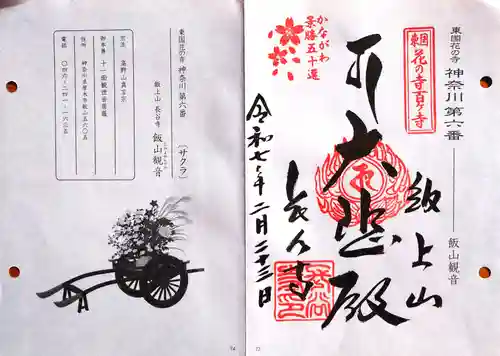 東国花の寺 神奈川 第六番
飯山観音
東国
花の寺百ヶ寺
かながわ
景勝五十選
飯上山
大悲殿
長谷寺
令和七年二月二十三日
13
東国花の寺 神奈川 第六番 (サクラ)
飯上山 長谷寺 飯山観音
宗派 高野山真言宗
御本尊 十一面観世音菩薩
住所 神奈川県厚木市飯山五六〇五
電話 〇四六-二四一-一六三五
14